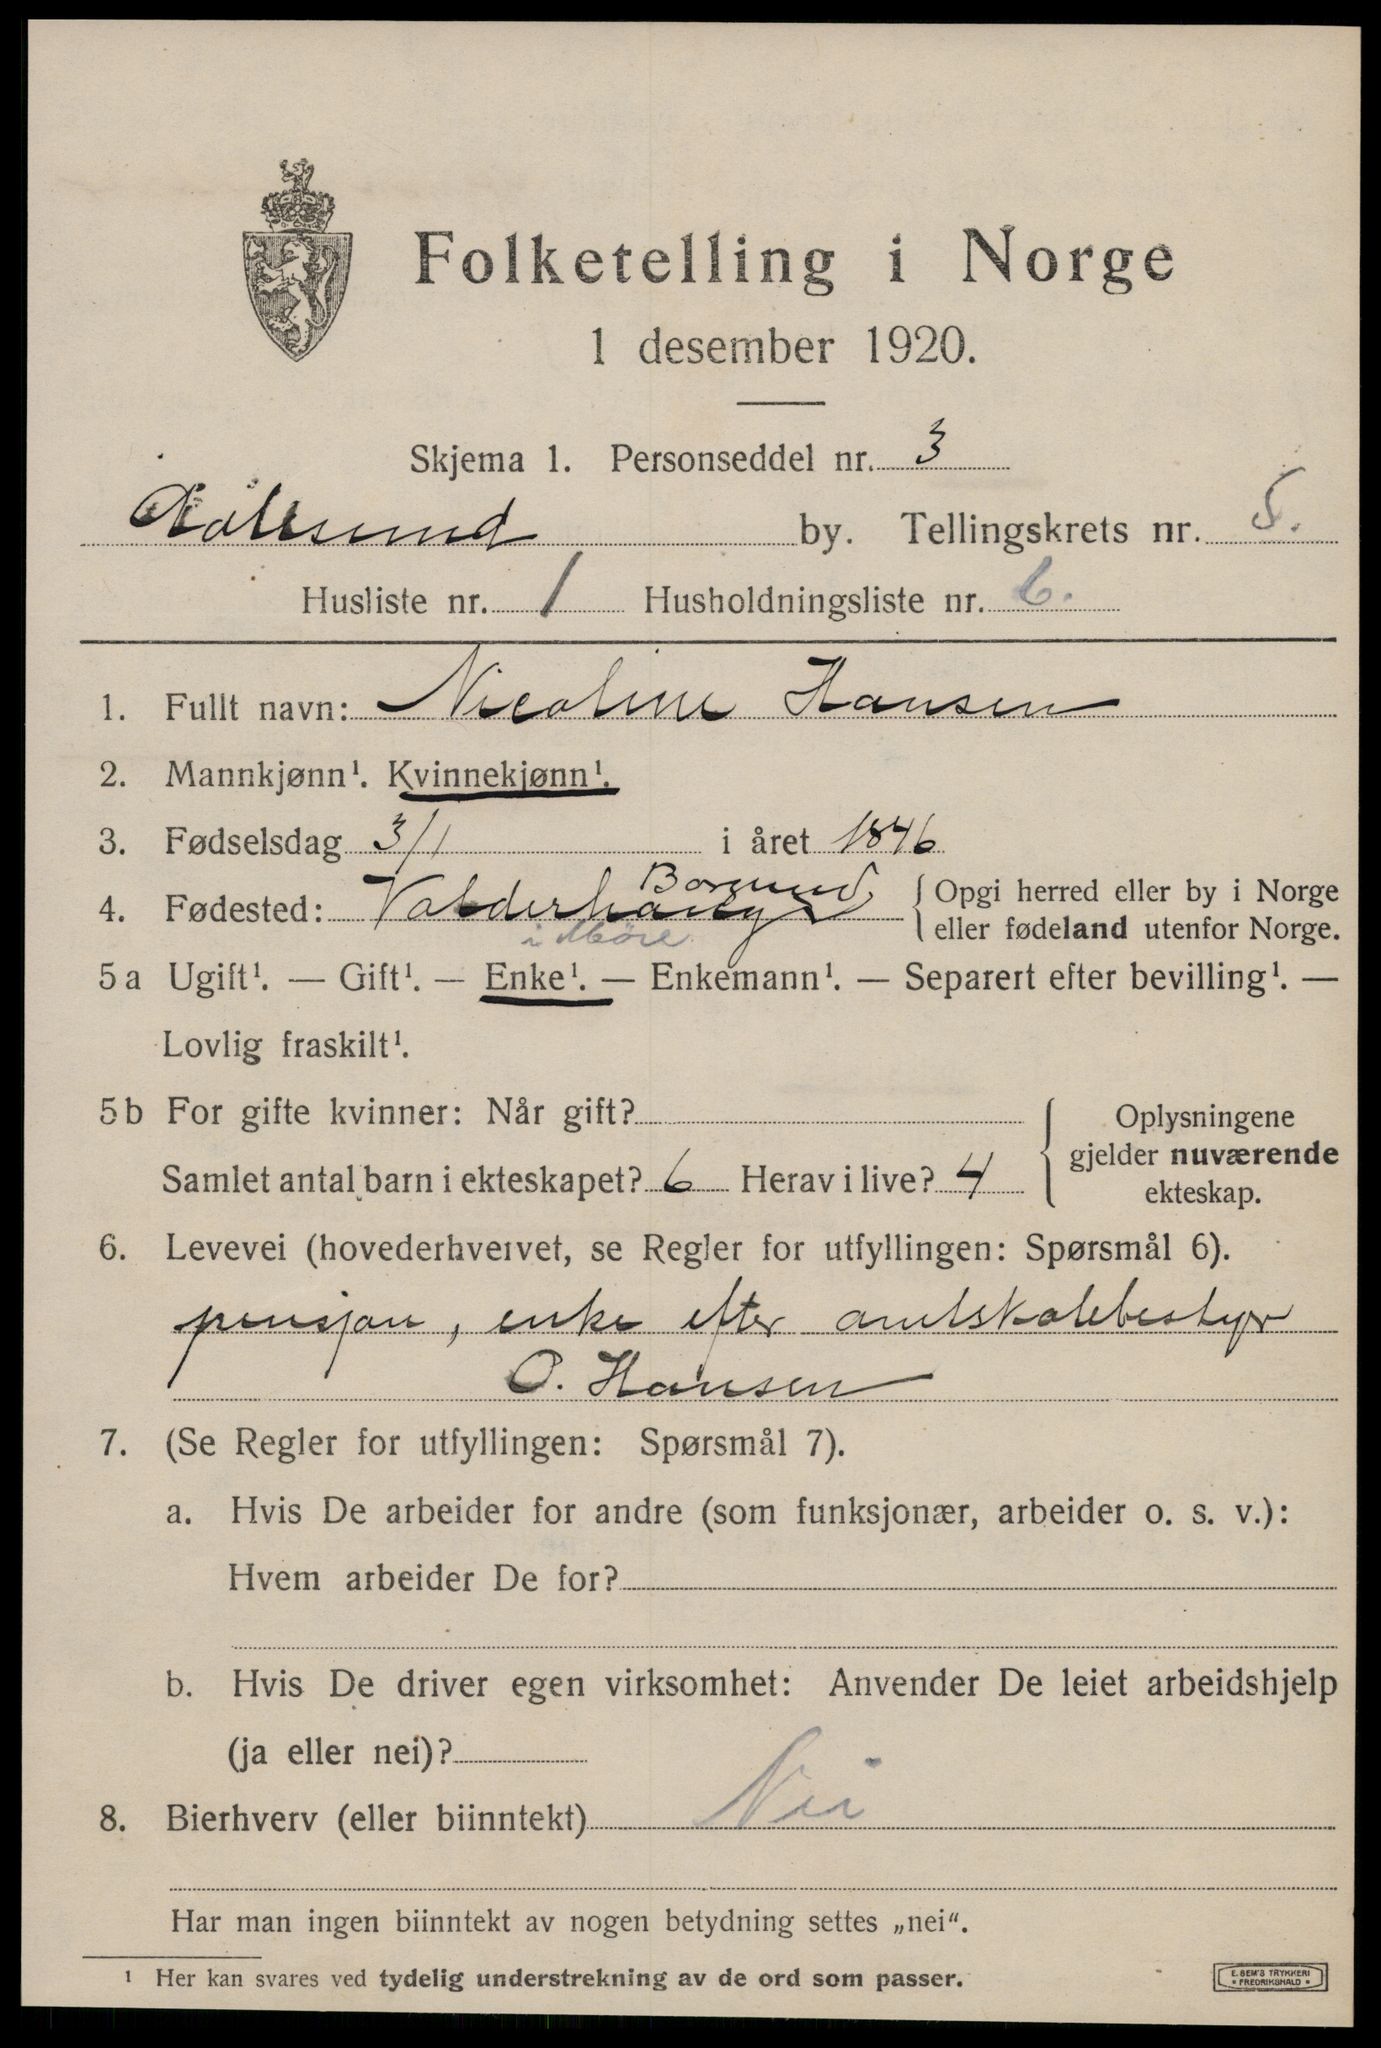 Folketelling i Norge
1 desember 1920.
Skjema 1. Personseddel nr. 3
Aalesund by. Tellingskrets nr. 5.
Husliste nr. 1 Husholdningsliste nr. 6.
1. Fullt navn: Nicoline Hansen
2. Mannkjønn¹. Kvinnekjønn¹.
3. Fødselsdag 3/1 i året 1846
Borgund
4. Fødested: Valderhaug { Opgi herred eller by i Norge
eller fødeland utenfor Norge.
i Møre
5a Ugift¹. — Gift¹. — Enke¹. — Enkemann¹. — Separert efter bevilling¹. —
Lovlig fraskilt¹.
5b For gifte kvinner: Når gift?
Samlet antal barn i ekteskapet? 6 Herav i live? 4
{ Oplysningene
gjelder nuværende
ekteskap.
6. Levevei (hovederhvervet, se Regler for utfyllingen: Spørsmål 6).
pensjon, enke efter amtskolebestyr
O. Hansen
7. (Se Regler for utfyllingen: Spørsmål 7).
a. Hvis De arbeider for andre (som funksjonær, arbeider o. s. v.):
Hvem arbeider De for?
b. Hvis De driver egen virksomhet: Anvender De leiet arbeidshjelp
(ja eller nei)?
8. Bierhverv (eller biinntekt) Nei
Har man ingen biinntekt av nogen betydning settes „nei“.
¹ Her kan svares ved tydelig understrekning av de ord som passer.
E. SEM'S TRYKKERI
• FREDRIKSHALD •